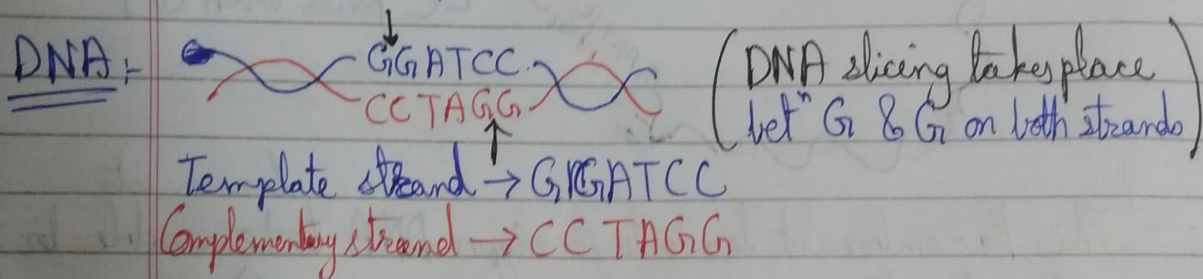 DNA :-
GGATCC
CCTAGG
(DNA slicing takes place
betⁿ G & G on both strands)
Template strand → GGATCC
Complementary strand → CCTAGG